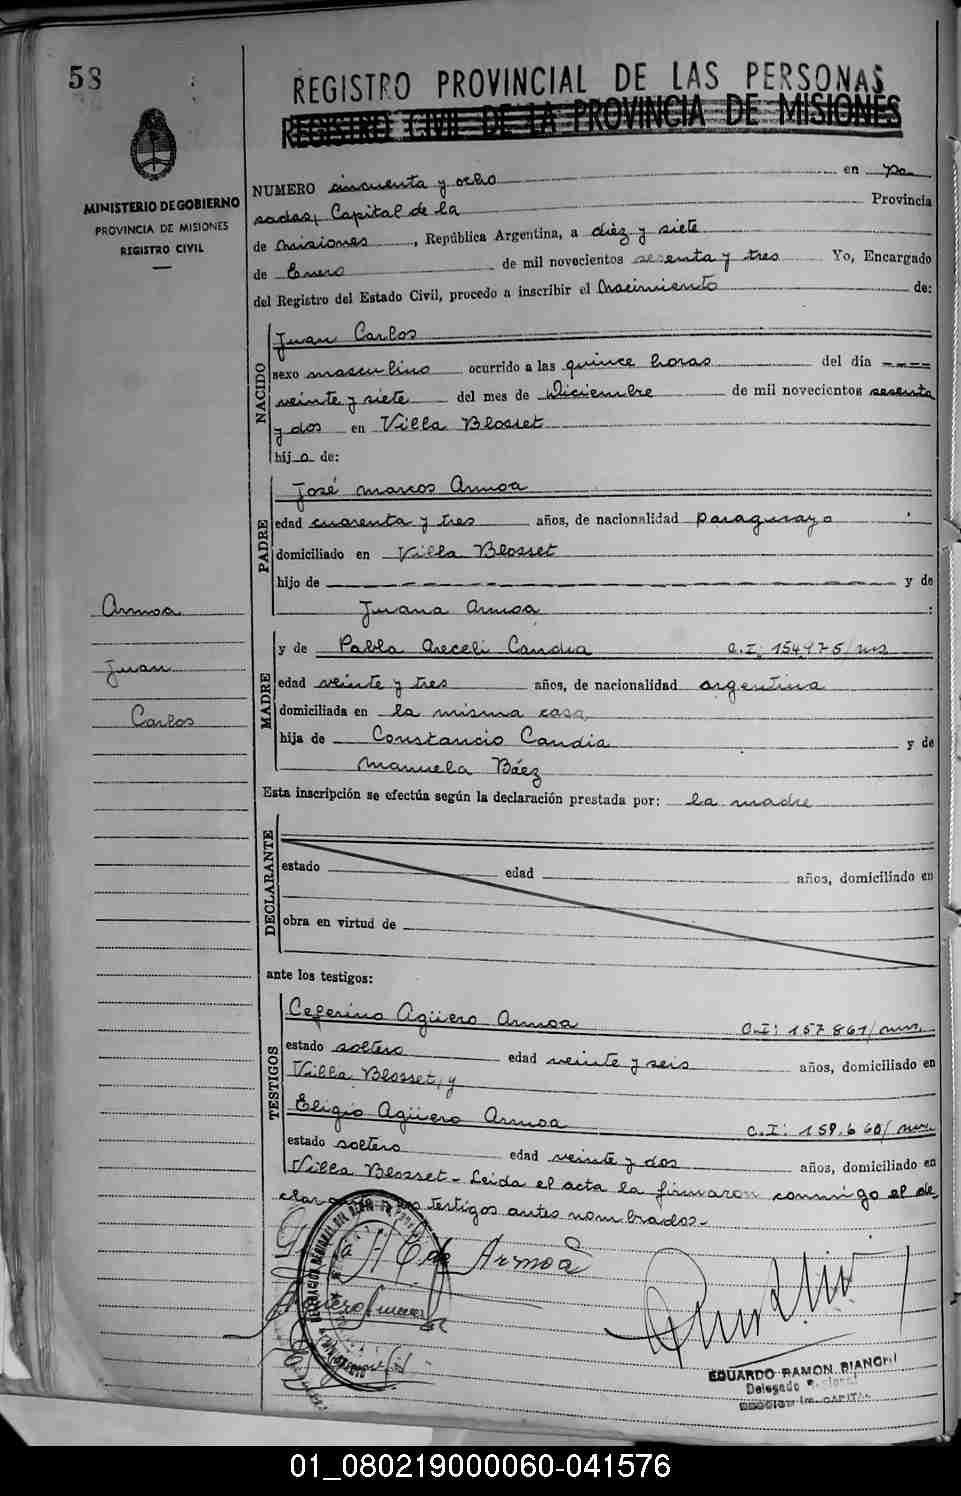 58
REGISTRO PROVINCIAL DE LAS PERSONAS
REGISTRO CIVIL DE LA PROVINCIA DE MISIONES
MINISTERIO DE GOBIERNO
PROVINCIA DE MISIONES
REGISTRO CIVIL
NUMERO cincuenta y ocho en Po
sadas, Capital de la Provincia
de Misiones, República Argentina, a diez y siete
de Enero de mil novecientos sesenta y tres Yo, Encargado
del Registro del Estado Civil, procedo a inscribir el Nacimiento de:
NACIDO
Juan Carlos
sexo masculino ocurrido a las quince horas del día ----
veinte y siete del mes de Diciembre de mil novecientos sesenta
y dos en Villa Blosset
hijo de:
PADRE
José Marcos Armoa
edad cuarenta y tres años, de nacionalidad paraguayo
domiciliado en Villa Blosset
hijo de y de
Juana Armoa
Armoa
Juan
Carlos
MADRE
y de Pabla Areceli Candia C.I: 154.975/ms
edad veinte y tres años, de nacionalidad argentina
domiciliada en la misma casa
hija de Constancio Candia y de
Manuela Báez
Esta inscripción se efectúa según la declaración prestada por: la madre
DECLARANTE
estado edad años, domiciliado en
obra en virtud de
ante los testigos:
TESTIGOS
Ceferino Agüero Armoa C.I: 157861/mns.
estado soltero edad veinte y seis años, domiciliado en
Villa Blosset, y
Eligio Agüero Armoa C.I: 159.660/mns.
estado soltero edad veinte y dos años, domiciliado en
Villa Blosset - Leida el acta la firmaron conmigo el de
clarante testigos antes nombrados.-
C de Armoa
Agüero
EDUARDO RAMON BIANCHI
Delegado
CAPITAL
01_080219000060-041576